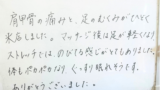 肩甲骨の痛みも、足のむくみがひどく
来店しました。マッサージ後は足が軽くなり
ストレッチではのびてる感じがとてもありました。
体もポカポカなり、ぐっすり眠れそうです。
ありがとうございました。